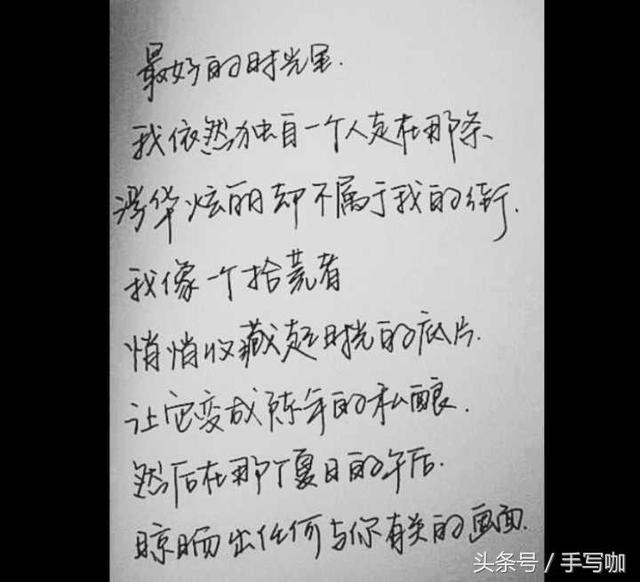 最好的时光里.
我依然独自一个人走在那条
浮华炫丽却不属于我的街.
我像一个拾荒者
悄悄收藏起时光的底片.
让它变成陈年的私酿.
然后在那个夏日的午后.
晾晒出任何与你有关的画面.
头条号 / 手写咖